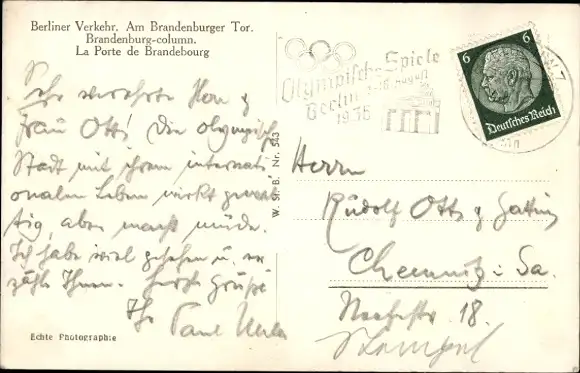 Berliner Verkehr. Am Brandenburger Tor.
Brandenburg-column.
La Porte de Brandebourg
Sehr verehrter Herr &
Frau Otto! Die olympische
Stadt mit ihrem internati-
onalen Leben wirkt
tig, aber macht müde.
Ich habe viel gesehen u. er-
zähle Ihnen. Herzl. Grüße
Ihr Paul
Echte Photographie
W. St. B. Nr. 543
Olympische Spiele
Berlin 1.-16. August
1936
6 6
Deutsches Reich
Herrn
Rudolf Otto & Gattin
Chemnitz i. Sa.
18.